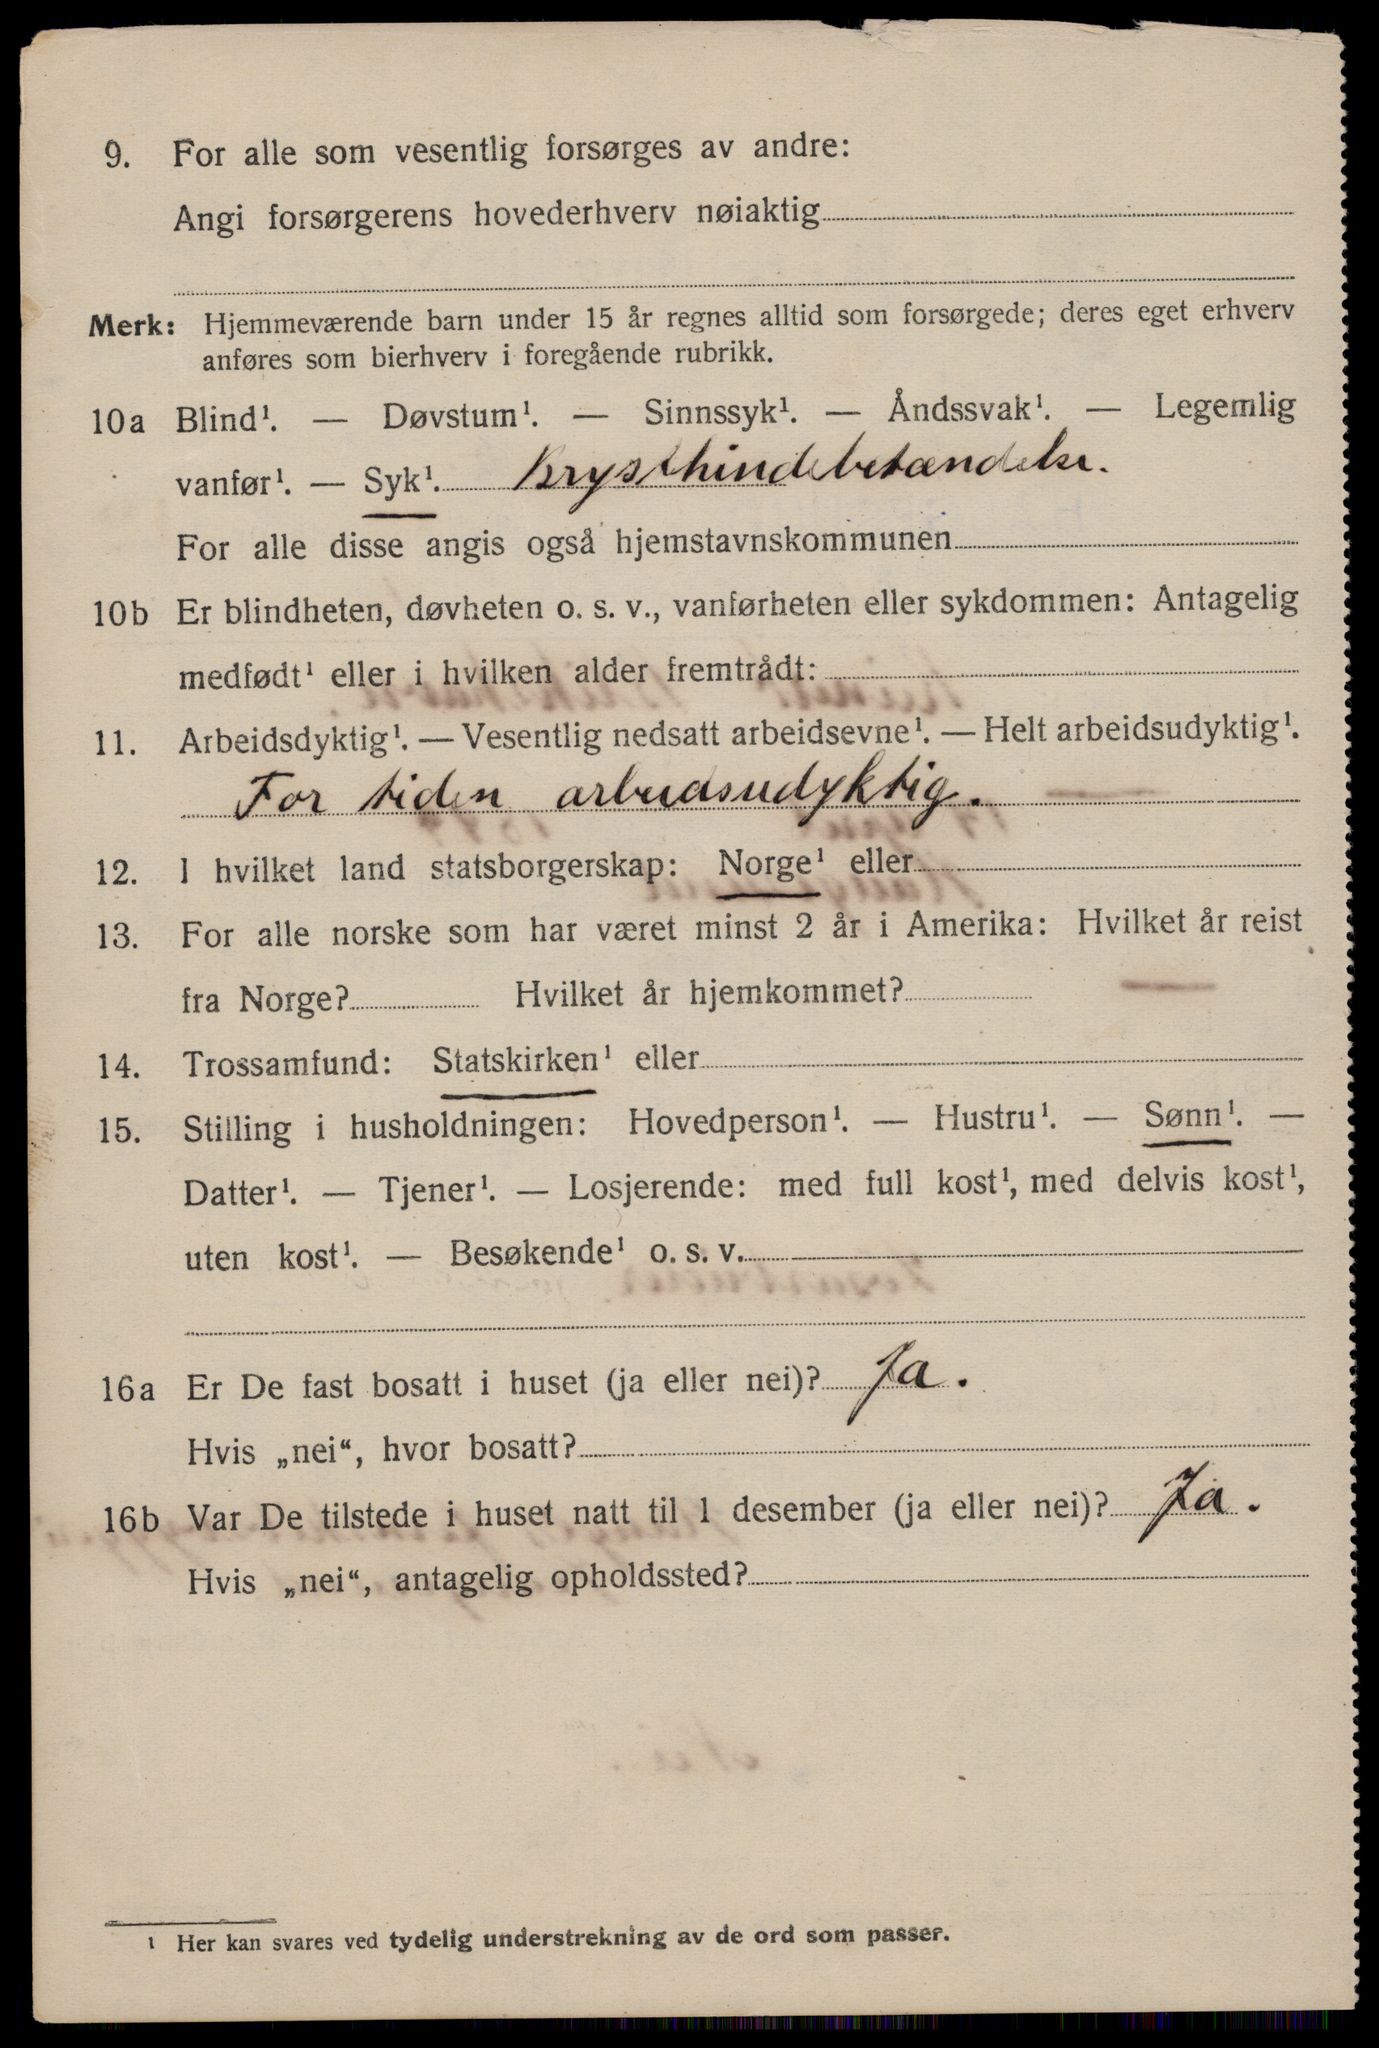 9. For alle som vesentlig forsørges av andre:
Angi forsørgerens hovederhverv nøiaktig
Merk: Hjemmeværende barn under 15 år regnes alltid som forsørgede; deres eget erhverv
anføres som bierhverv i foregående rubrikk.
10a Blind¹. — Døvstum¹. — Sinnssyk¹. — Åndssvak¹. — Legemlig
vanfør¹. — Syk¹. Brysthindebetændelse.
For alle disse angis også hjemstavnskommunen
10b Er blindheten, døvheten o. s. v., vanførheten eller sykdommen: Antagelig
medfødt¹ eller i hvilken alder fremtrådt:
11. Arbeidsdyktig¹. — Vesentlig nedsatt arbeidsevne¹. — Helt arbeidsudyktig¹.
For tiden arbeidsudyktig.
12. I hvilket land statsborgerskap: Norge¹ eller
13. For alle norske som har været minst 2 år i Amerika: Hvilket år reist
fra Norge? Hvilket år hjemkommet?
14. Trossamfund: Statskirken¹ eller
15. Stilling i husholdningen: Hovedperson¹. — Hustru¹. — Sønn¹. —
Datter¹. — Tjener¹. — Losjerende: med full kost¹, med delvis kost¹,
uten kost¹. — Besøkende¹ o. s. v.
16a Er De fast bosatt i huset (ja eller nei)? Ja.
Hvis „nei“, hvor bosatt?
16b Var De tilstede i huset natt til 1 desember (ja eller nei)? Ja.
Hvis „nei“, antagelig opholdssted?
¹ Her kan svares ved tydelig understrekning av de ord som passer.